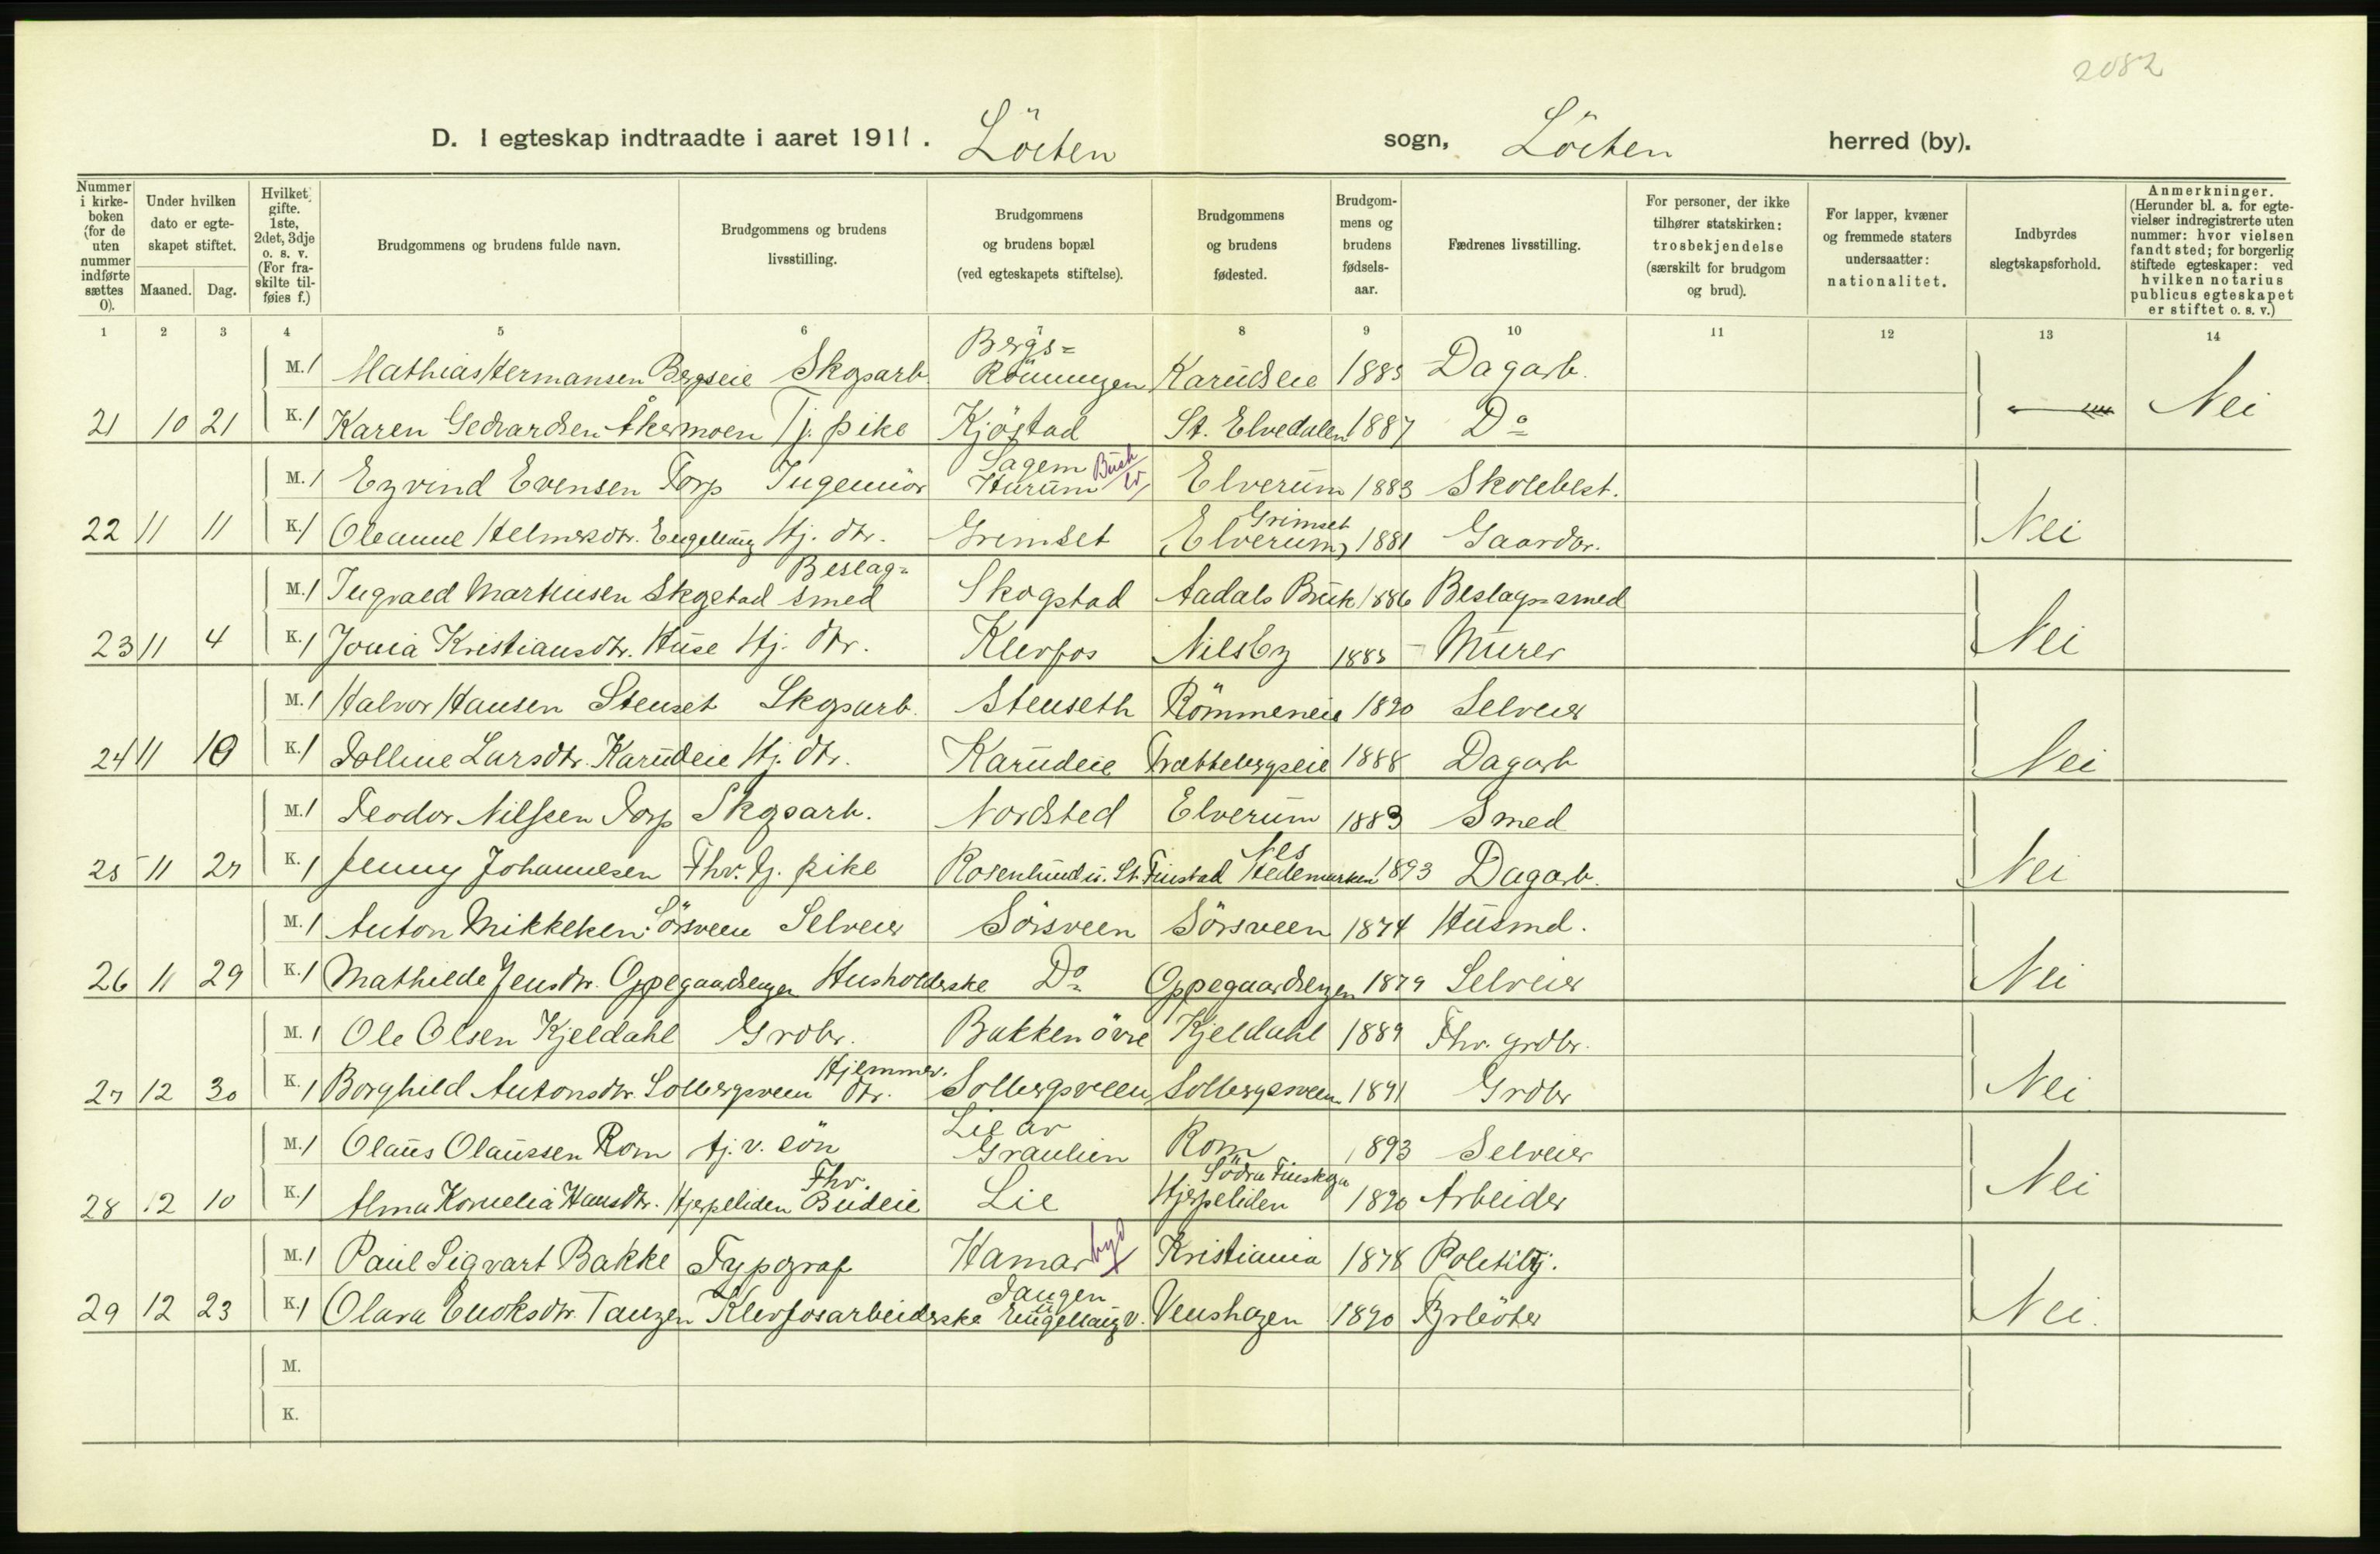 2082
D. I egteskap indtraadte i aaret 1911. Löiten sogn, Löiten herred (by).
Nummer i kirkeboken (for de uten nummer indførte sættes 0).
Under hvilken dato er egteskapet stiftet.
Maaned. Dag.
Hvilket gifte. 1ste, 2det, 3dje o. s. v. (For fraskilte tilføies f.)
Brudgommens og brudens fulde navn.
Brudgommens og brudens livsstilling.
Brudgommens og brudens bopæl (ved egteskapets stiftelse).
Brudgommens og brudens fødested.
Brudgommens og brudens fødselsaar.
Fædrenes livsstilling.
For personer, der ikke tilhører statskirken: trosbekjendelse (særskilt for brudgom og brud).
For lapper, kvæner og fremmede staters undersaatter: nationalitet.
Indbyrdes slegtskapsforhold.
Anmerkninger. (Herunder bl. a. for egtevielser indregistrerte uten nummer: hvor vielsen fandt sted; for borgerlig stiftede egteskaper: ved hvilken notarius publicus egteskapet er stiftet o. s. v.)
1 2 3 4 5 6 7 8 9 10 11 12 13 14
M. 1 Mathias Hermansen Bergseie Skogsarb. Bergs= Rönningen Karudseie 1885 Dagarb.
21 10 21 K. 1 Karen Gedvardsen Åkermoen Tj. pike Kjöstad St. Elvedalen 1887 Do Nei
M. 1 Eyvind Evensen Torp Ingeniör Sagem Hurum Busk Elverum 1883 Skolebest.
22 11 11 K. 1 Oleanne Helmersdtr. Engelaug Hj. dtr. Grimset Grimset Elverum 1881 Gaardbr. Nei
M. 1 Ingvald Martinsen Skogstad Beslag= smed Skogstad Aadals Bruk 1886 Beslagsmed
23 11 4 K. 1 Jonia Kristiansdtr. Huse Hj. dtr. Klevfos Nilsby 1885 Murer Nei
M. 1 Halvor Hansen Stenset Skogsarb. Stenseth Römmeneie 1890 Selveier
24 11 10 K. 1 Polline Larsdtr. Karudeie Hj. dtr. Karudeie Trættebergseie 1888 Dagarb Nei
M. 1 Teodor Nilssen Torp Skogsarb. Nordsted Elverum 1883 Smed
25 11 27 K. 1 Jenny Johannesen Fhv. tj. pike Rosenlund u. St. Finstad Nes Hedemarken 1893 Dagarb. Nei
M. 1 Anton Mikkelsen Sörsveen Selveier Sörsveen Sörsveen 1874 Husmd.
26 11 29 K. 1 Mathilde Jensdtr. Oppegaardsengen Husholderske Do Oppegaardsengen 1879 Selveier Nei
M. 1 Ole Olsen Kjeldahl Grdbr. Bakken övre Kjeldahl 1889 Fhv. grdbr.
27 12 30 K. 1 Borghild Antonsdtr. Solbergsveen Hjemmev. dtr. Solbergsveen Solbergsveen 1891 Grdbr Nei
M. 1 Olaus Olaussen Rom Hj. v. sön Lie av Graulien Rom 1893 Selveier
28 12 10 K. 1 Alma Kornelia Hansdtr. Hjerpeliden Fhv. Budeie Lie Södra Finskoga Hjerpeliden 1890 Arbeider Nei
M. 1 Paul Sigvart Bakke Typograf Hamar by Kristiania 1878 Polititj.
29 12 23 K. 1 Olava Enoksdtr. Tangen Klevfosarbeiderske Tangen u. Engelaug v. Venshagen 1890 Fyrböter Nei.
M.
K.